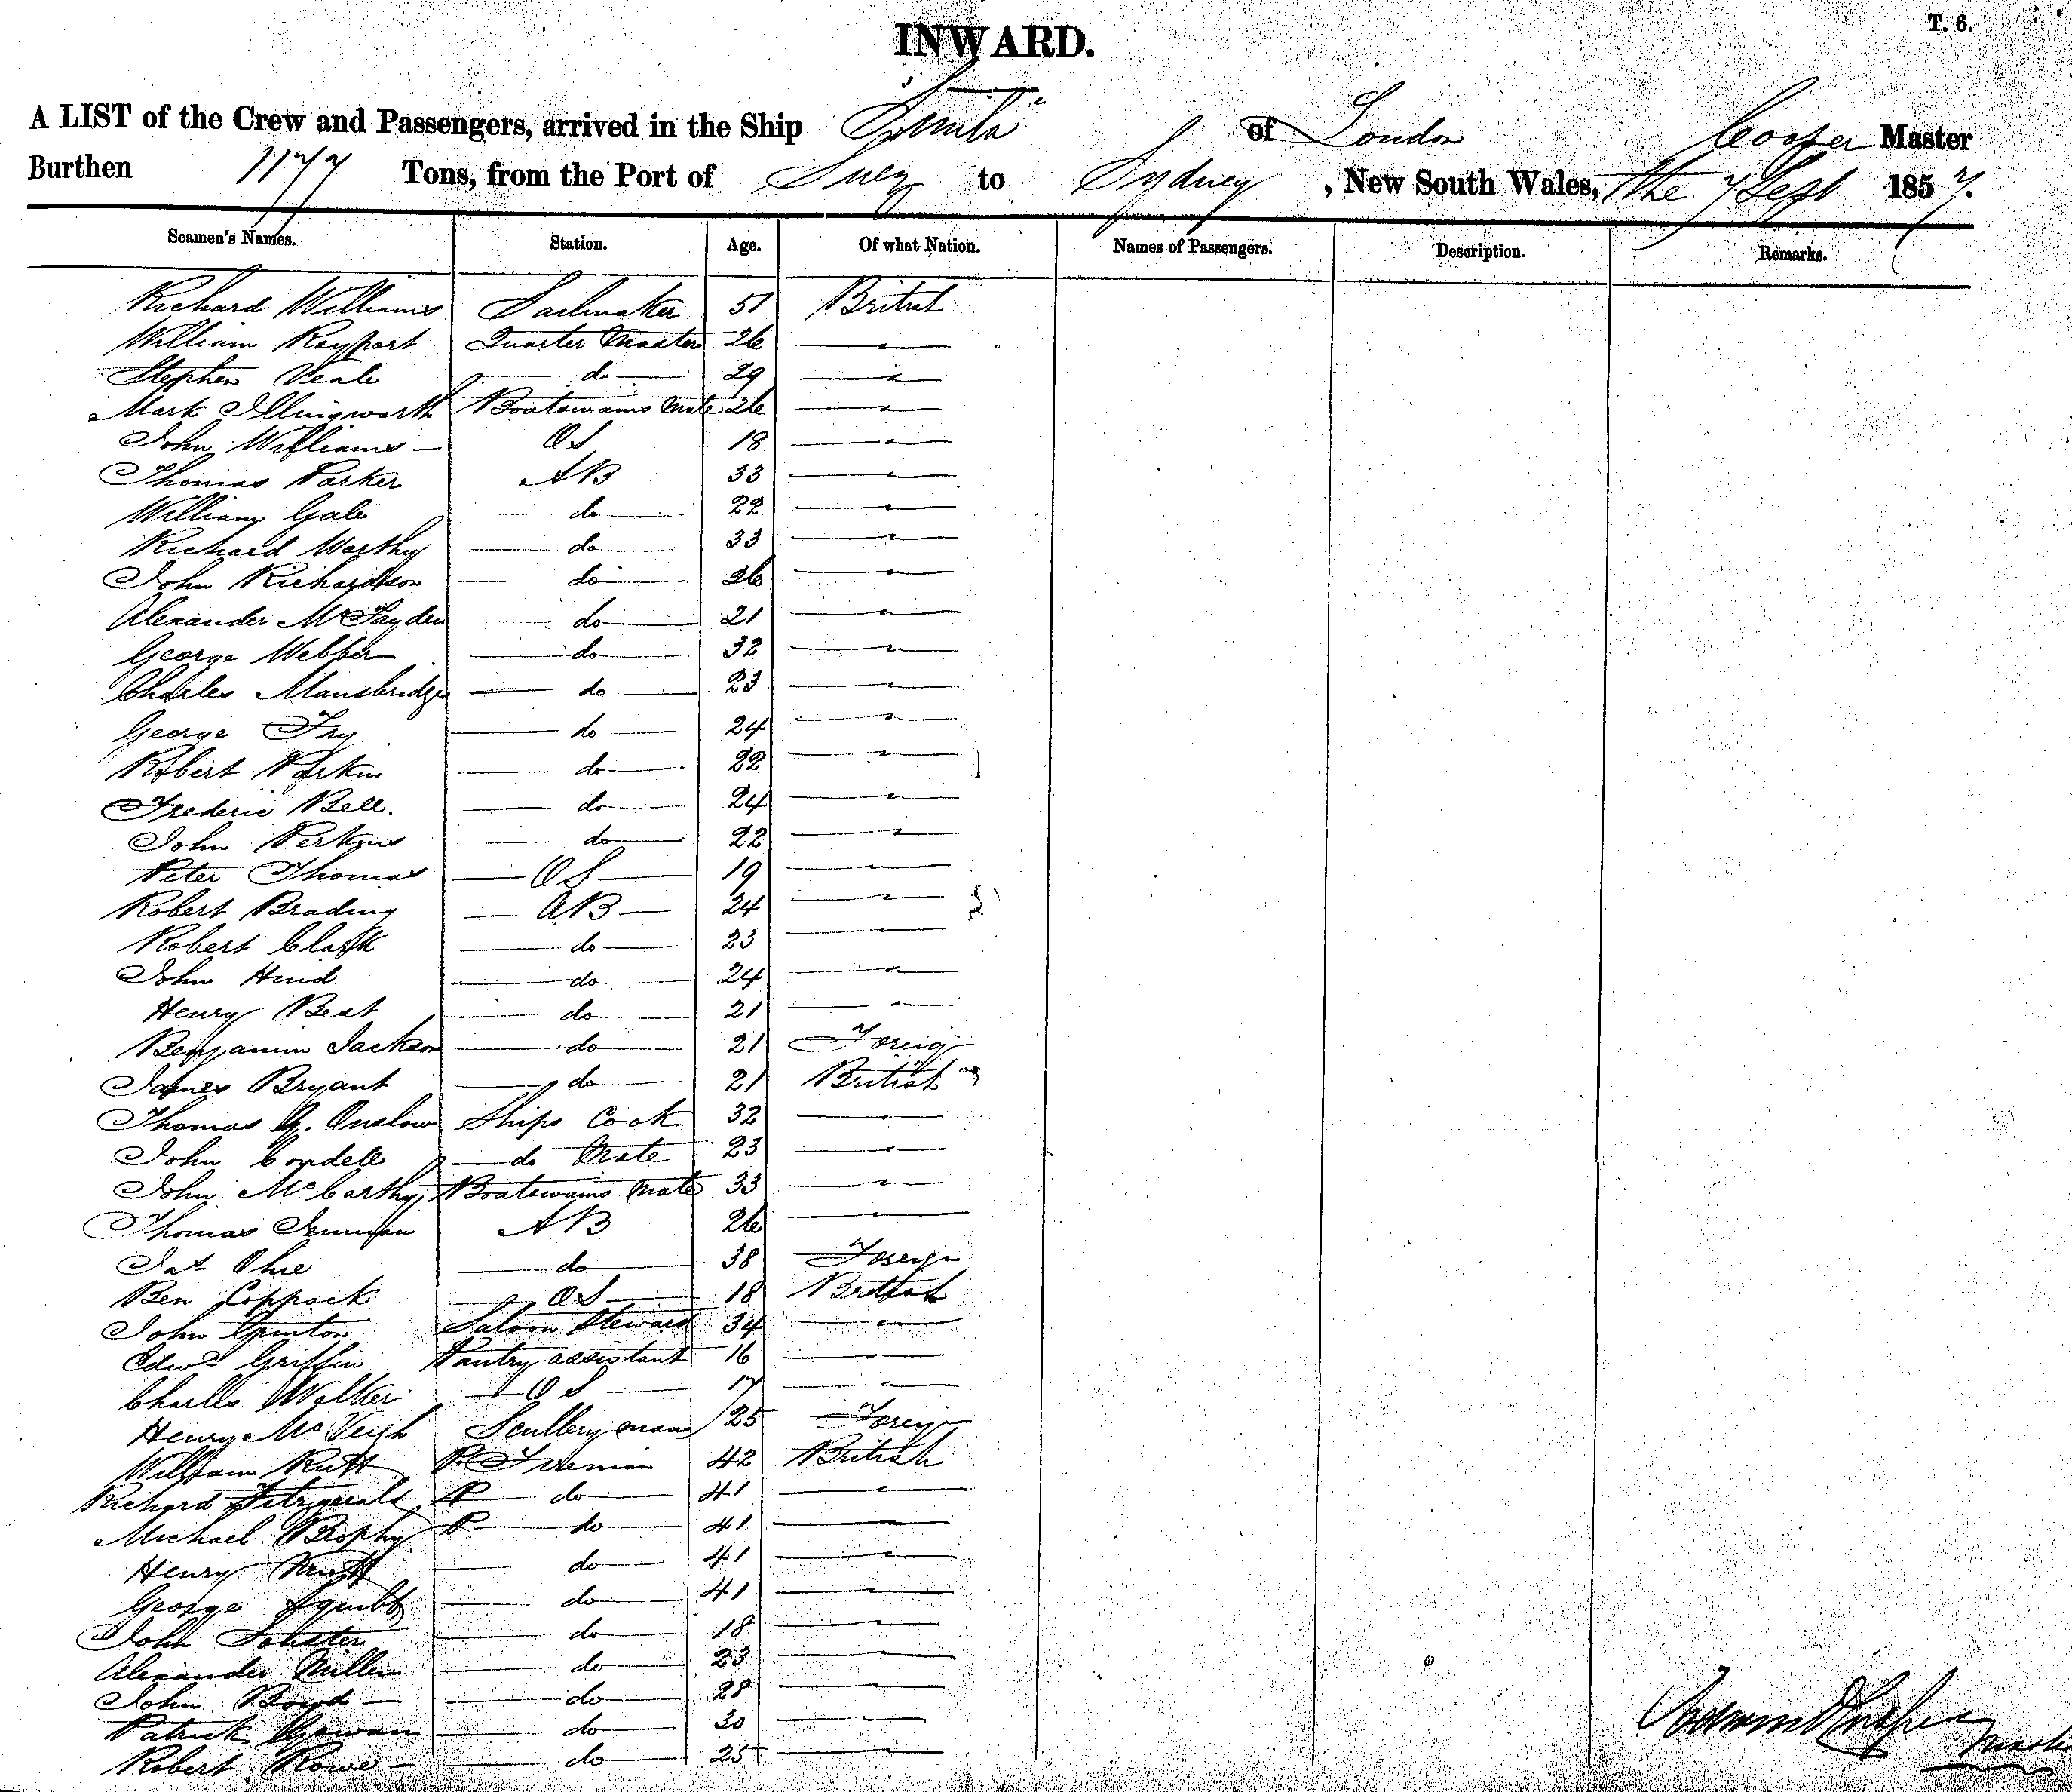 T. 6.
INWARD.
A LIST of the Crew and Passengers, arrived in the Ship "Simla" of London Cooper Master
Burthen 1177 Tons, from the Port of Suez to Sydney, New South Wales, the 7 Sept 1857.
Seamen's Names. Station. Age. Of what Nation. Names of Passengers. Description. Remarks.
Richard Williams Sailmaker 51 British
William Rayport Quarter Master 26 "
Stephen Veale do 29 "
Mark Illingworth Boatswains Mate 26 "
John Williams OS 18 "
Thomas Parker AB 33 "
William Gale do 22 "
Richard Worthy do 33 "
John Richardson do 26 "
Alexander McFayden do 21 "
George Webber do 32 "
Charles Mansbridge do 23 "
George Fry do 24 "
Robert do 22 "
Frederic Bell. do 24 "
John Perkins do 22 "
Peter Thomas OS 19 "
Robert Brading AB 24 "
Robert Clark do 23 "
John Hind do 24 "
Henry Best do 21 "
Benjamin Jackson do 21 Foreig
James Bryant do 21 British
Thomas G. Onslow Ships Cook 32 "
John Cordell do Mate 23 "
John McCarthy Boatswains Mate 33 "
Thomas AB 26 "
do 38 Foreign
Ben Coppock OS 18 British
John Saloon Steward 34 "
Edwd Griffin Pantry assistant 16 "
Charles Walker OS 17 "
Henry McVeigh Scullery man 25 Foreign
William Rutt P Fireman 42 British
Richard Fitzgerald P do 41 "
Michael Brophy P do 41 "
Henry do 41 "
George Squibb do 41 "
John do 18 "
Alexander Miller do 23 "
John Boyd do 28 "
Patrick do 30 "
Robert Rowe do 25 "